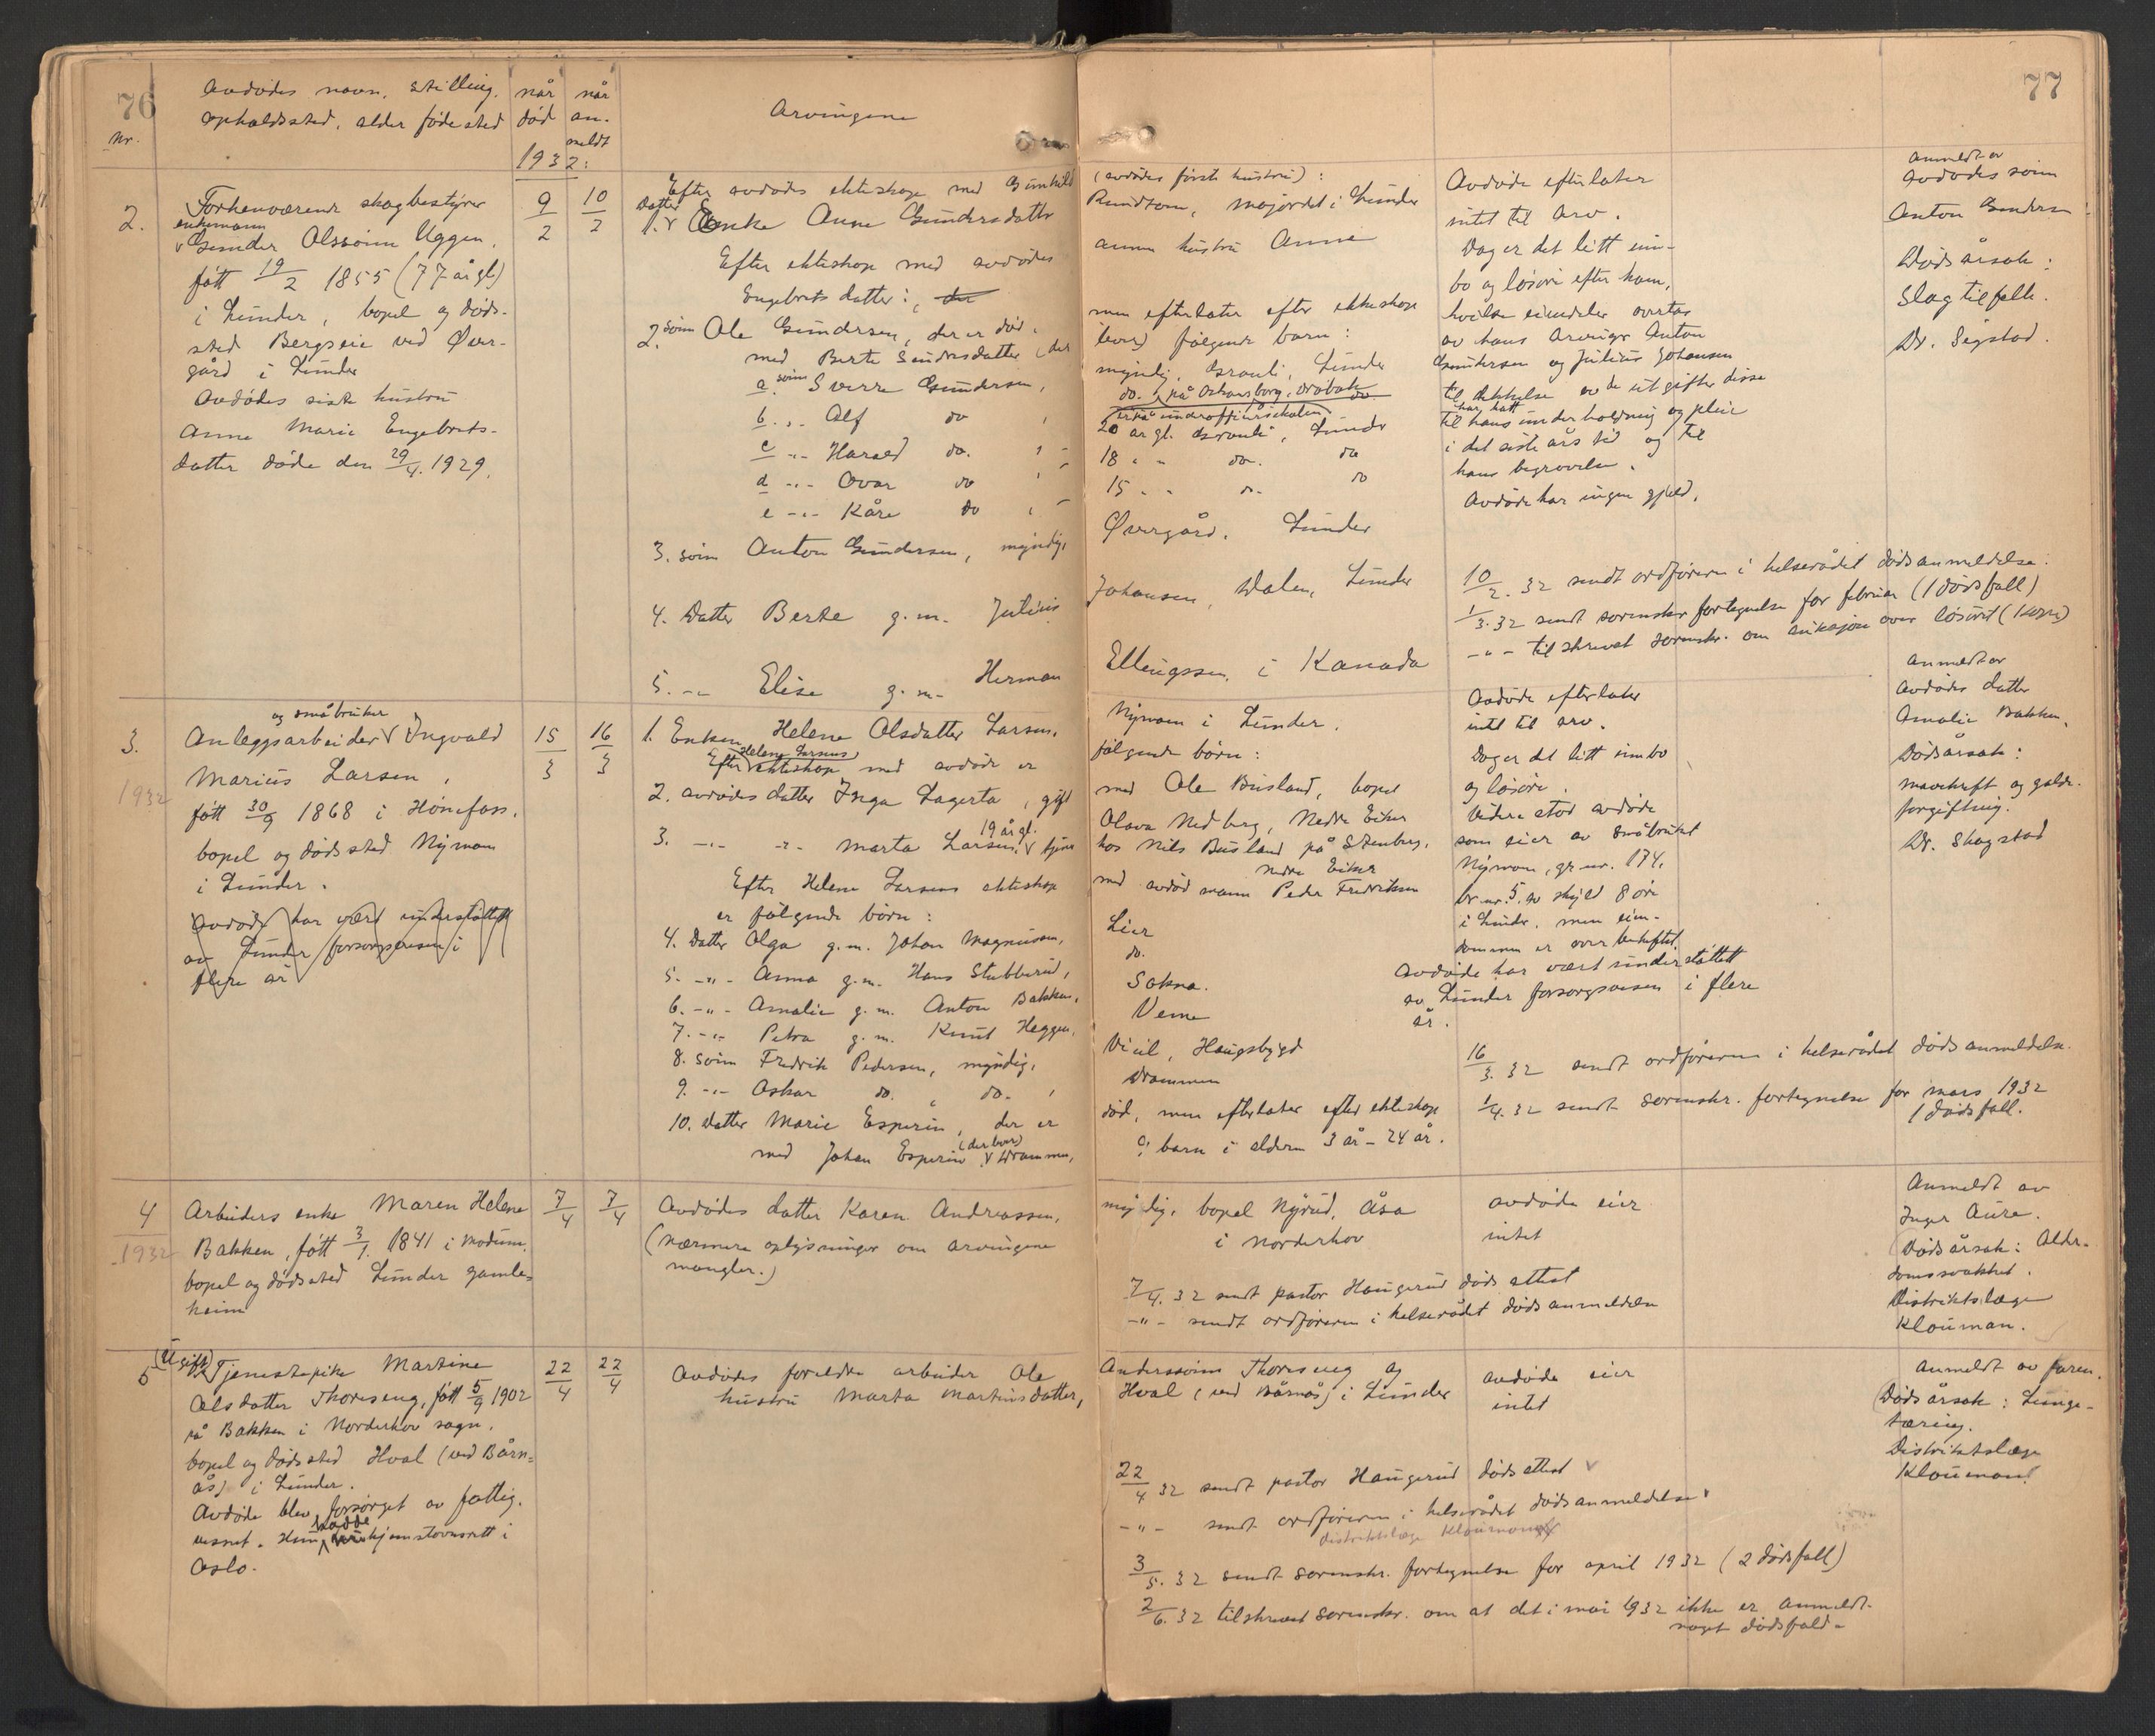 76
Nr.
Avdødes navn, stilling,
opholdssted, alder fødested
når
død
når
an-
meldt
1932:
Arvingene
77
2.
Forhenværende skogbestyrer
enkemann
Gunder Olssønn Uggen,
født 19/2 1855 (77 år gl)
i Lunder, bopel og døds-
sted Bergseie ved Øver-
gård i Lunder
Avdødes siste hustru
Anne Marie Engebrets-
datter døde den 29/4. 1929.
9/2
10/2
Efter avdødes ekteskap med Gunhild (avdødes første hustru):
datter
1. Enke Anne Gundersdatter Rundtom, Majordet i Lunder
Efter ekteskap med avdødes annen hustru Anne
Engebretsdatter:
2. sønn Ole Gundersen, der er død, men efterlater efter ekteskap
med Berte Gundersdatter (der lever) følgende barn:
a sønn Sverre Gundersen, myndig, Granli, Lunder
b. -"- Alf do , do. på Oskarsborg, Drøbak do.
er på underoffisersskolen
c -"- Harald do. , 20 år gl. Granli, Lunder
d -"- Ovar do , 18 " - do. do
e -"- Kåre do , 15 - - do. do
3. sønn Anton Gundersen, myndig, Øvergård, Lunder
4. Datter Berte g.m. Julius Johansen, Dalen, Lunder
5. -"- Elise g.m. Herman Ellingssen, i Kanada
Avdøde efterlater
intet til arv.
Dog er det litt inn-
bo og løsøre efter ham,
hvilke eiendeler overtas
av hans arvinger Anton
Gundersen og Julius Johansen
til dekkelse av de utgifter disse
har hatt
til hans underholdning og pleie
i det siste års tid og til
hans begravelse.
Avdøde har ingen gjeld.
10/2. 32 sendt ordføreren i helserådet dødsanmeldelse.
1/3. 32 sendt sorenskr fortegnelse for februar (1 dødsfall)
-"- tilskrevet sorenskr. om auksjon over løsøret (kopi)
Anmeldt av
avdødes sønn
Anton Gundersen
Dødsårsak:
Slagtilfelle.
Dr. Sigstad.
3.
1932
og småbruker
Anleggsarbeider Ingvald
Marius Larsen,
født 30/9 1868 i Hønefoss.
bopel og dødssted Nymoen
i Lunder.
Avdøde har vært understøttet
av Lunder forsorgsvesen i
flere år
15/3
16/3
1. Enken Helene Olsdatter Larsen, Nymoen i Lunder.
Helene Larsens
Efter ekteskap med avdøde er følgende børn:
2. avdødes datter Inga Lagerta, gift med Ole Busland, bopel
Olava Nedberg, Nedre Eiker
19 år gl.
3. -"- -"- Marta Larsen, tjener hos Nils Busland på Stenberg,
Nedre Eiker
Efter Helene Larsens ekteskap med avdød mann Peder Fredriksen
er følgende børn:
4. Datter Olga g.m. Johan Magnussen, Lier
5. -"- Anna g.m. Hans Stubberud, do.
6. -"- Amalie g.m. Anton Bakken, Sokna.
7. -"- Petra g.m. Knut Heggen, Veme
8. sønn Fredrik Pedersen, myndig, Viul, Haugsbygd
9. -"- Oskar do. , do. , Drammen
10. Datter Marie Esperin, der er død, men efterlater efter ekteskap
(der bor)
med Johan Esperin Drammen, 9 barn i alderen 3 år - 24 år.
Avdøde efterlater
intet til arv.
Dog er det litt innbo
og løsøre.
Videre stod avdøde
som eier av småbruket
Nymoen, gr.nr. 174,
br.nr. 5. av skyld 8 øre
i Lunder, men eien-
dommen er overbeheftet.
Avdøde har vært understøttet
av Lunder forsorgsvesen i flere
år.
16/3. 32 sendt ordføreren i helserådet dødsanmeldelse.
1/4. 32 sendt sorenskr. fortegnelse for mars 1932
1 dødsfall.
Anmeldt av
avdødes datter
Amalie Bakken.
Dødsårsak:
mavekreft og galde-
forgiftning.
Dr. Skagstad
4
1932
Arbeiders enke Maren Helene
Bakken, født 3/1. 1841 i Modum.
bopel og dødssted Lunder gamle-
heim
7/4
7/4
Avdødes datter Karen Andreassen, myndig, bopel Nyrud, Åsa
i Norderhov
(nærmere oplysninger om arvingene
mangler.)
avdøde eier
intet
7/4. 32 sendt pastor Haugerud dødsattest
-"- sendt ordføreren i helserådet dødsanmeldelse
Anmeldt av
Inger Aure.
(Dødsårsak: Alder-
domssvakhet.
Distriktslæge
Klouman.
5
(Ugift)
Tjenestepike Martine
Olsdatter Thoreseng, født 5/9 1902
på Bakken i Norderhov sogn.
bopel og dødssted Hval (ved Bårn-
ås) i Lunder.
Avdøde blev forsørget av fattig-
vesnet. Hun hadde hjemstavnsrett i
Oslo.
22/4
22/4
Avdødes foreldre arbeider Ole Anderssønn Thoreseng og
hustru Marta Martinsdatter, Hval (ved Bårnås) i Lunder
avdøde eier
intet
22/4 32 sendt pastor Haugerud dødsattest
-"- sendt ordføreren i helserådet dødsanmeldelse
distriktslæge Klouman
3/5. 32 sendt sorenskr. fortegnelse for april 1932 (2 dødsfall)
2/6. 32 tilskrevet sorenskr. om at det i mai 1932 ikke er anmeldt
noget dødsfald.
Anmeldt av faren.
(Dødsårsak: Lunge-
tæring.
Distriktslæge
Klouman)